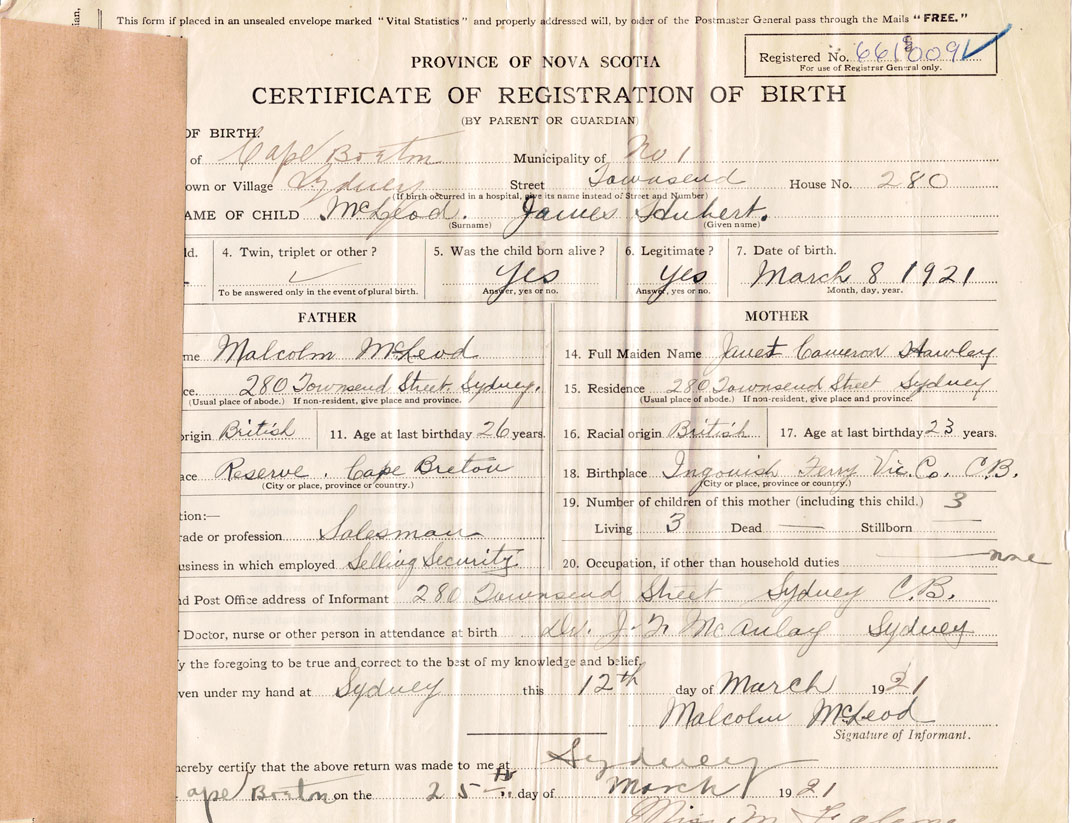 ian,
This form if placed in an unsealed envelope marked "Vital Statistics" and properly addressed will, by order of the Postmaster General pass through the Mails "FREE."
Registered No.
For use of Registrar General only.
PROVINCE OF NOVA SCOTIA
CERTIFICATE OF REGISTRATION OF BIRTH
(BY PARENT OR GUARDIAN)
OF BIRTH.
of Cape Breton Municipality of No 1
own or Village Sydney Street Townsend House No. 280
(If birth occurred in a hospital, give its name instead of Street and Number)
AME OF CHILD McLeod. James Hubert.
(Surname) (Given name)
ld. 4. Twin, triplet or other? 5. Was the child born alive? 6. Legitimate? 7. Date of birth.
Yes Yes March 8 1921
To be answered only in the event of plural birth. Answer, yes or no. Answer, yes or no. Month, day, year.
FATHER MOTHER
me Malcolm McLeod 14. Full Maiden Name Janet Cameron Hawley
ce. 280 Townsend Street. Sydney. 15. Residence 280 Townsend Street Sydney
(Usual place of abode.) If non-resident, give place and province. (Usual place of abode.) If non-resident, give place and province.
origin British 11. Age at last birthday 26 years. 16. Racial origin British 17. Age at last birthday 23 years.
ace Reserve. Cape Breton 18. Birthplace Ingonish Ferry Vic. Co. C.B.
(City or place, province or country.) (City or place, province or country.)
19. Number of children of this mother (including this child.) 3
tion:—
rade or profession Salesman Living 3 Dead — Stillborn —
usiness in which employed Selling Security 20. Occupation, if other than household duties none
d Post Office address of Informant 280 Townsend Street Sydney C.B.
Doctor, nurse or other person in attendance at birth Dr. J. McAulay Sydney
y the foregoing to be true and correct to the best of my knowledge and belief.
ven under my hand at Sydney this 12th day of March 1921
Malcolm McLeod
Signature of Informant.
hereby certify that the above return was made to me at Sydney
ape Breton on the 25th day of March 1921
Miss M